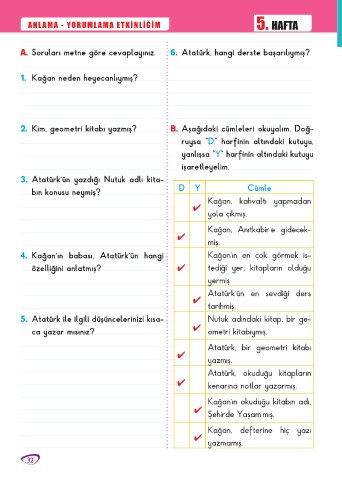 ANLAMA - YORUMLAMA ETKİNLİĞİM
5. HAFTA
A. Soruları metne göre cevaplayınız.
1. Kağan neden heyecanlıymış?
2. Kim, geometri kitabı yazmış?
3. Atatürk'ün yazdığı Nutuk adlı kita-
bın konusu neymiş?
4. Kağan'ın babası, Atatürk'ün hangi
özelliğini anlatmış?
5. Atatürk ile ilgili düşüncelerinizi kısa-
ca yazar mısınız?
6. Atatürk, hangi derste başarılıymış?
B. Aşağıdaki cümleleri okuyalım. Doğ-
ruysa "D" harfinin altındaki kutuyu,
yanlışsa "Y" harfinin altındaki kutuyu
işaretleyelim.
D Y Cümle
Kağan, kahvaltı yapmadan
yola çıkmış.
Kağan, Anıtkabir'e gidecek-
miş.
Kağan'ın en çok görmek is-
tediği yer, kitapların olduğu
yermiş
Atatürk'ün en sevdiği ders
tarihmiş.
Nutuk adındaki kitap, bir ge-
ometri kitabıymış.
Atatürk, bir geometri kitabı
yazmış.
Atatürk, okuduğu kitapların
kenarına notlar yazarmış.
Kağan'ın okuduğu kitabın adı,
Şehirde Yaşam'mış.
Kağan, defterine hiç yazı
yazmamış.
32